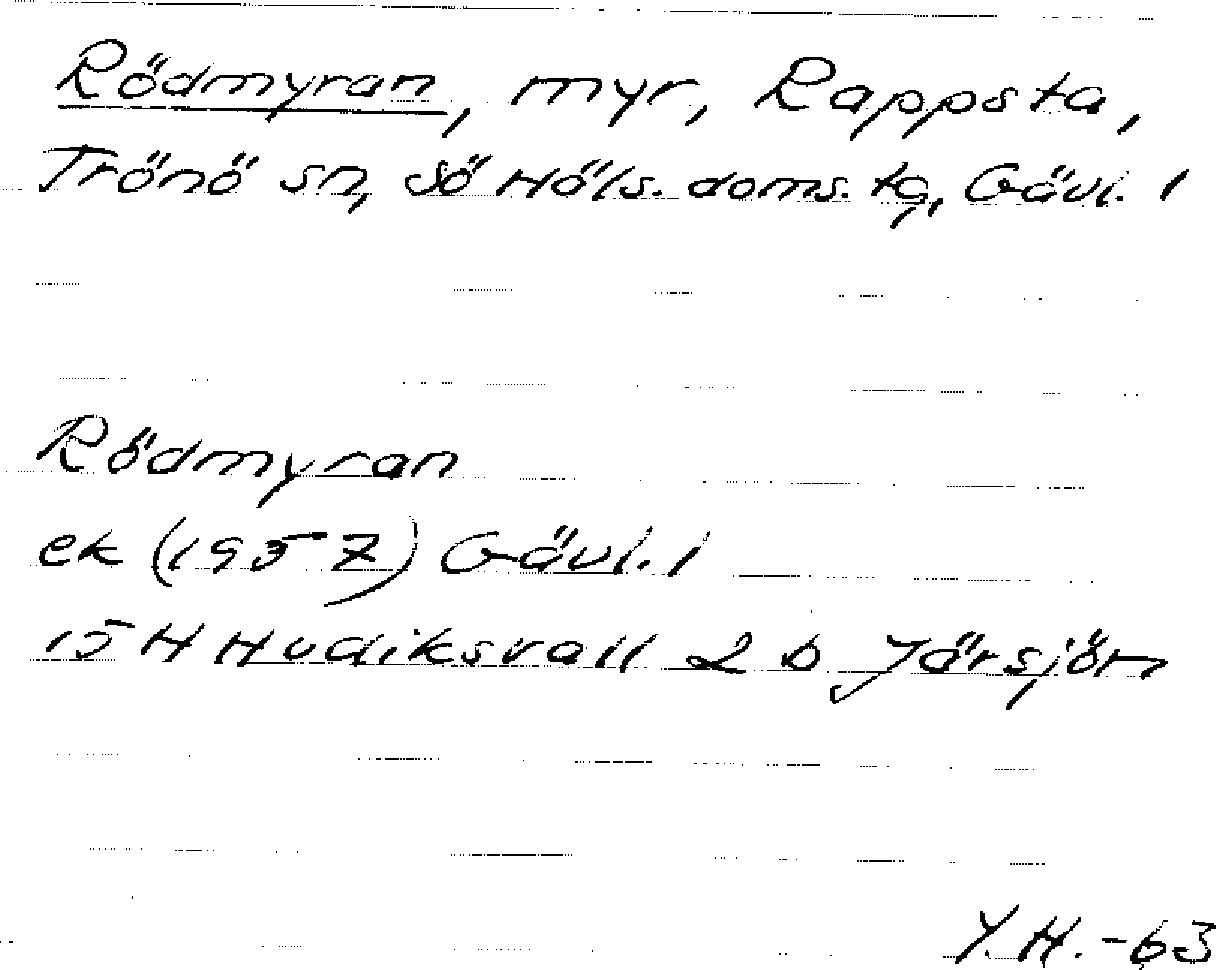 Rödmyran, myr, Rappsta,
Trönö sn, Sö Häls. doms. tg, Gävl. l
Rödmyran
ek (1957) Gävl. l
15 H Hudiksvall 2 b Järsjön
Y.H. -63